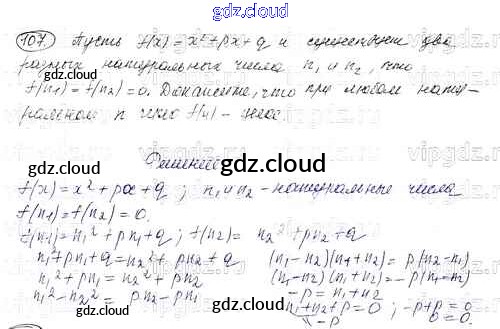 gdz.cloud
107. Пусть f(x) = x² + px + q и существует два
gdz.cloud
разных натуральных числа n₁ и n₂, что
f(n₁) = f(n₂) = 0. Докажите, что при любом нату-
ральном n число f(n) -
gdz.cloud
Решение
f(x) = x² + px + q ; n₁ и n₂ - натуральные числа
f(n₁) = f(n₂) = 0.
f(n₁) = n₁² + pn₁ + q ; f(n₂) = n₂² + pn₂ + q
n₁² + pn₁ + q = n₂² + pn₂ + q (n₁ - n₂)(n₁ + n₂) = p(n₂ - n₁)
n₁² + pn₁ = n₂² + pn₂ (n₁ - n₂)(n₁ + n₂) = -p(n₁ - n₂)
n₁² - n₂² = pn₂ - pn₁ -p = n₁ + n₂
n₁ + n₂ + p = 0 ; -p + p = 0
-p 0 = 0.
gdz.cloud
gdz.cloud
vipgdz